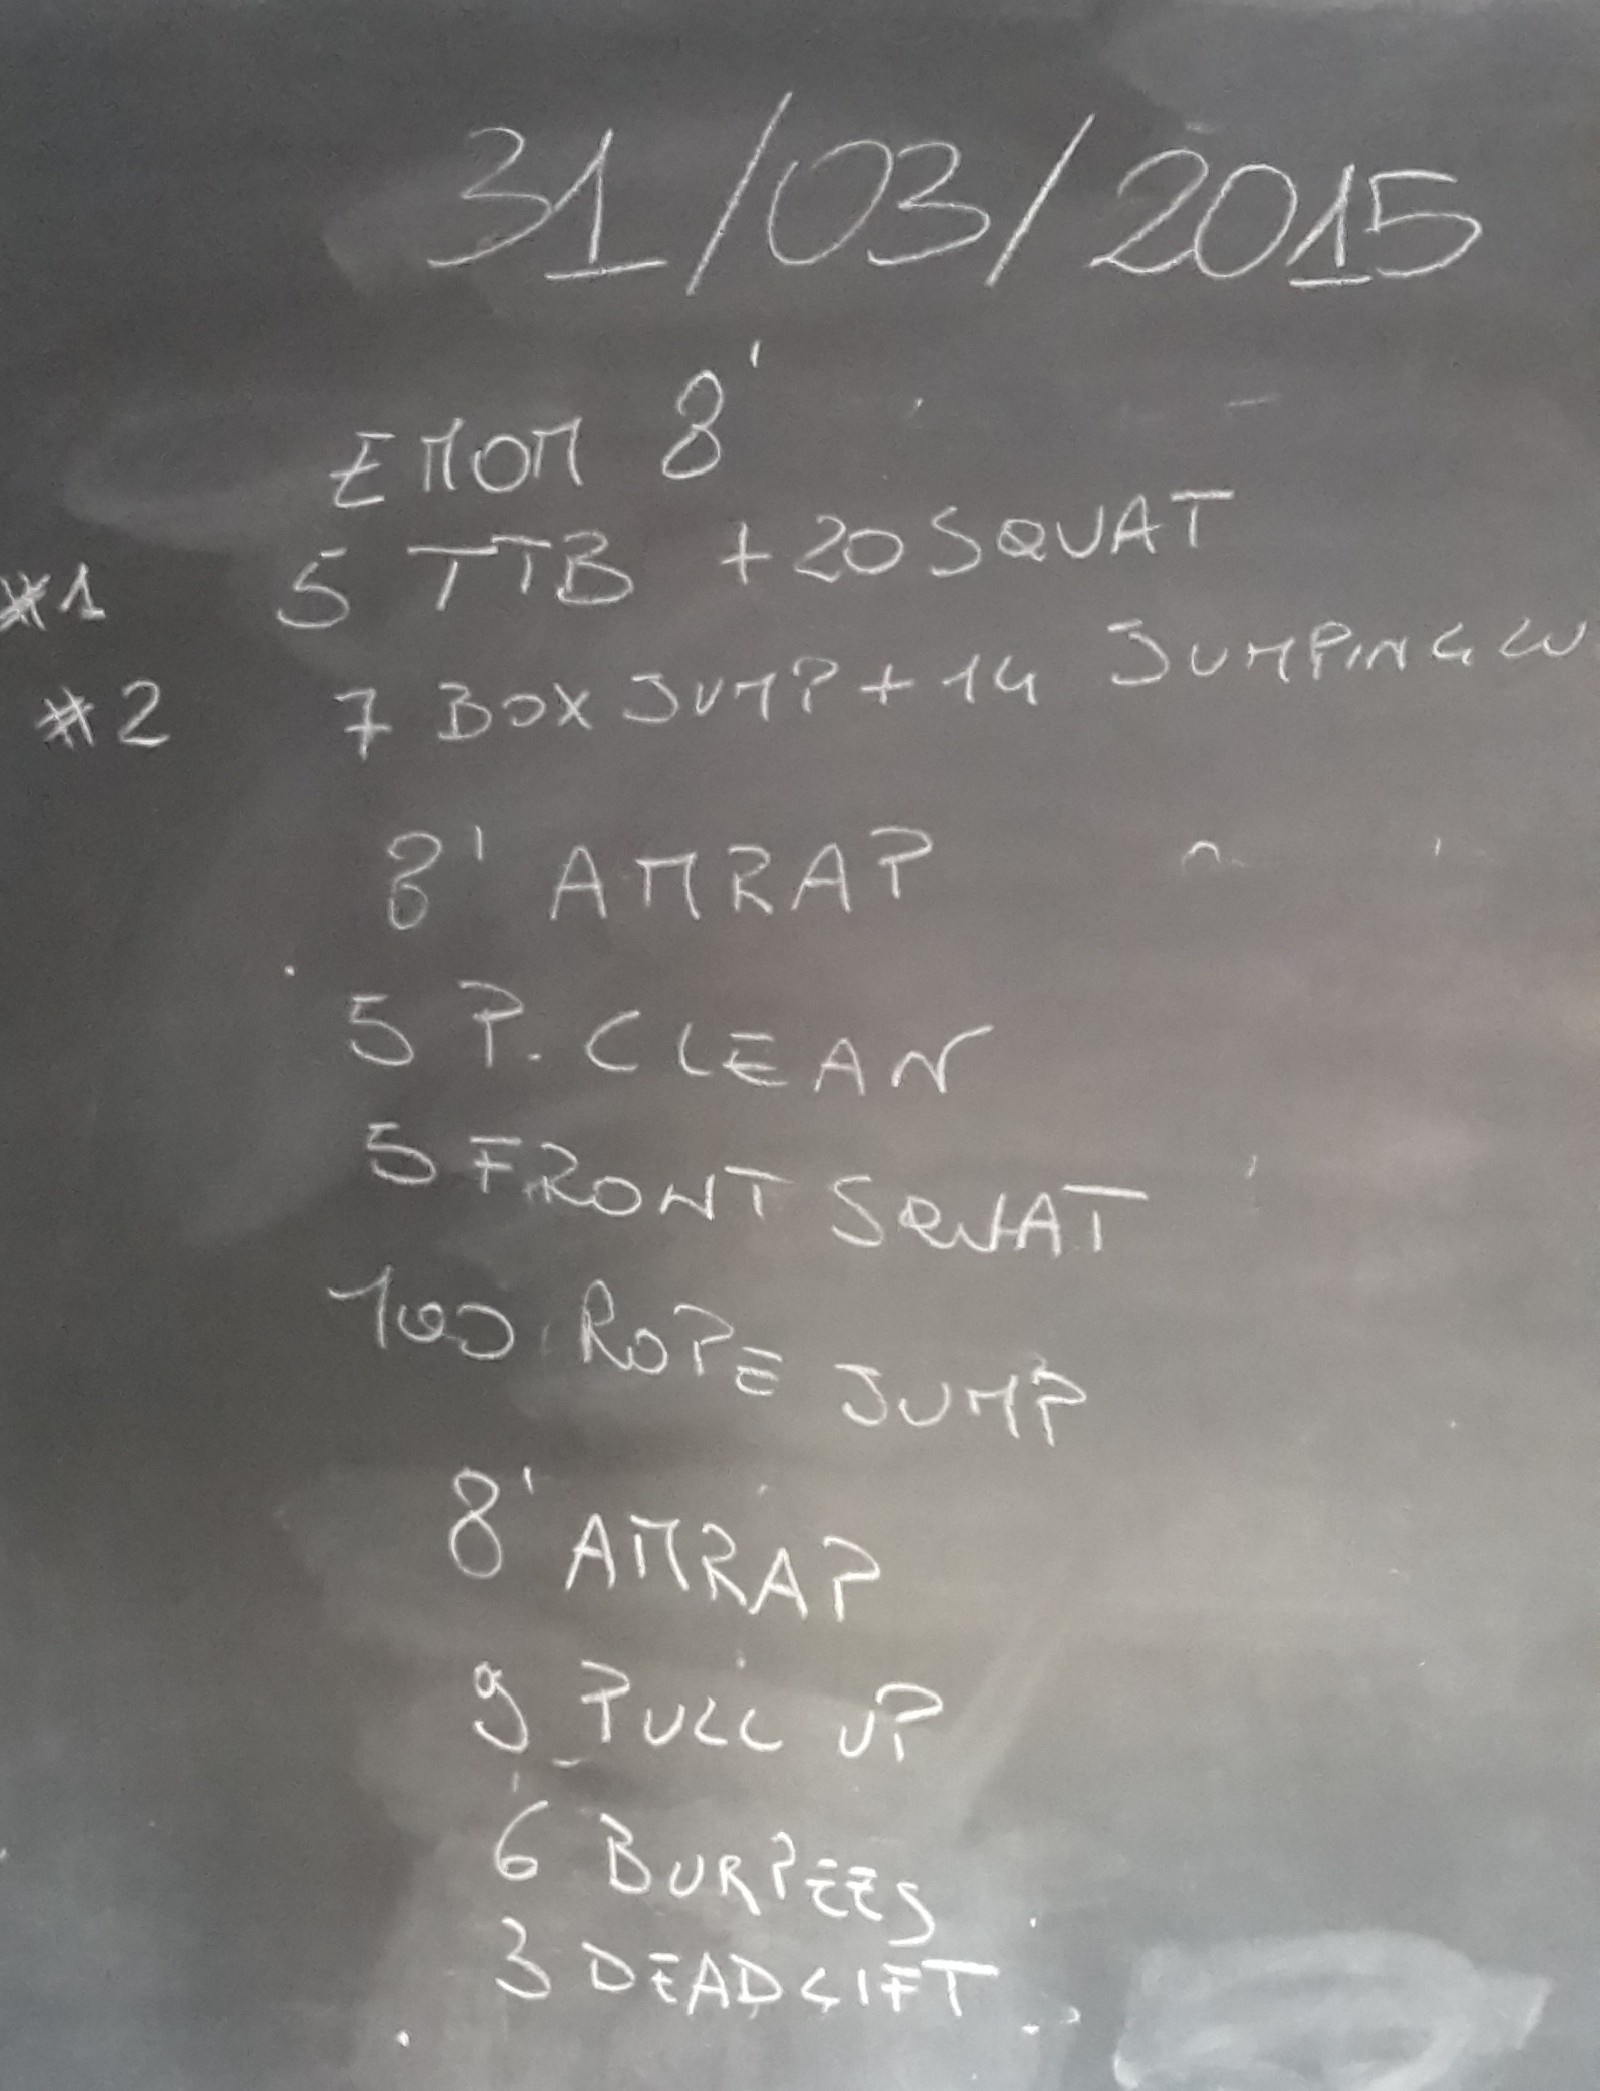 31/03/2015
EMOM 8'
#1 5 TTB + 20 SQUAT
#2 7 BOX JUMP + 14 JUMPING LU
8' AMRAP
5 P. CLEAN
5 FRONT SQUAT
100 ROPE JUMP
8' AMRAP
9 PULL UP
6 BURPEES
3 DEADLIFT